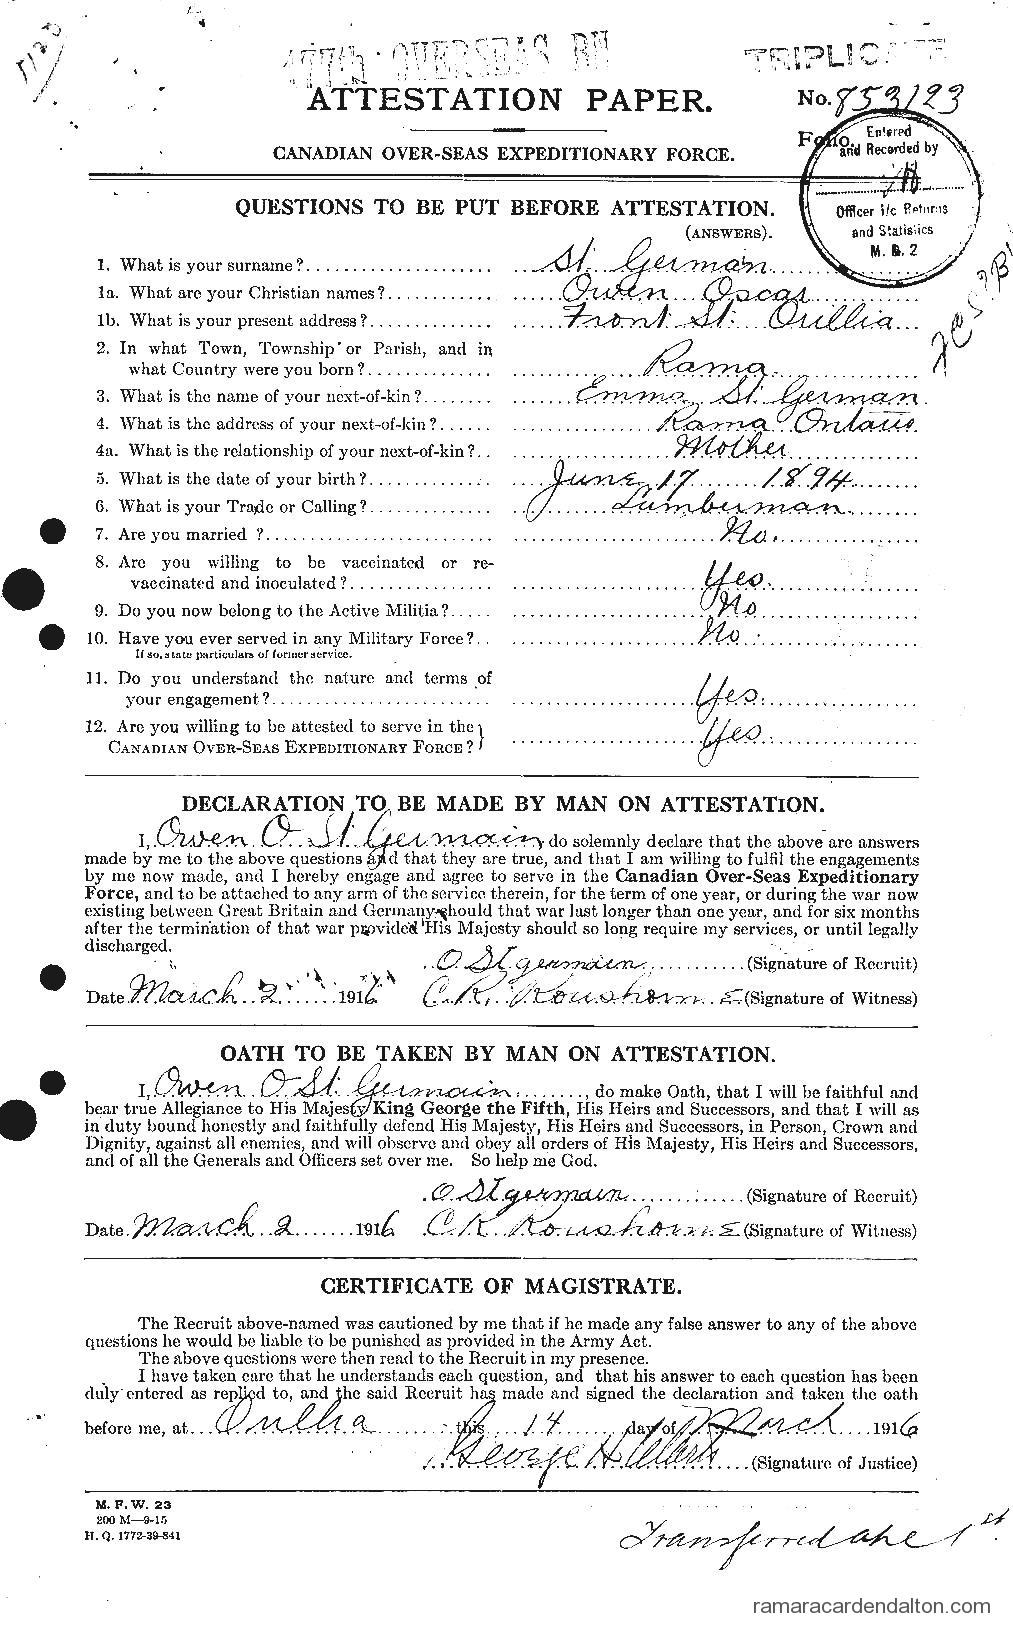 177th OVERSEAS BN
TRIPLICATE
ATTESTATION PAPER.
No. 853123
Folio.
CANADIAN OVER-SEAS EXPEDITIONARY FORCE.
Entered
and Recorded by
Officer i/c Returns
and Statistics
M. D. 2
QUESTIONS TO BE PUT BEFORE ATTESTATION.
(ANSWERS).
1. What is your surname? St. German
1a. What are your Christian names? Owen Oscar
1b. What is your present address? Front St. Orillia
2. In what Town, Township or Parish, and in
what Country were you born? Rama
3. What is the name of your next-of-kin? Emma St. German
4. What is the address of your next-of-kin? Rama Ontario
4a. What is the relationship of your next-of-kin? Mother
5. What is the date of your birth? June 17 1894
6. What is your Trade or Calling? Lumberman
7. Are you married ? No.
8. Are you willing to be vaccinated or re-
vaccinated and inoculated? Yes.
9. Do you now belong to the Active Militia? No
10. Have you ever served in any Military Force? No.
If so, state particulars of former service.
11. Do you understand the nature and terms of
your engagement? Yes.
12. Are you willing to be attested to serve in the
CANADIAN OVER-SEAS EXPEDITIONARY FORCE? Yes.
DECLARATION TO BE MADE BY MAN ON ATTESTATION.
I, Owen O. St. Germain, do solemnly declare that the above are answers
made by me to the above questions and that they are true, and that I am willing to fulfil the engagements
by me now made, and I hereby engage and agree to serve in the Canadian Over-Seas Expeditionary
Force, and to be attached to any arm of the service therein, for the term of one year, or during the war now
existing between Great Britain and Germany should that war last longer than one year, and for six months
after the termination of that war provided His Majesty should so long require my services, or until legally
discharged.
O. St germain (Signature of Recruit)
Date March 2 1916 C. K. (Signature of Witness)
OATH TO BE TAKEN BY MAN ON ATTESTATION.
I, Owen O St. Germain, do make Oath, that I will be faithful and
bear true Allegiance to His Majesty King George the Fifth, His Heirs and Successors, and that I will as
in duty bound honestly and faithfully defend His Majesty, His Heirs and Successors, in Person, Crown and
Dignity, against all enemies, and will observe and obey all orders of His Majesty, His Heirs and Successors,
and of all the Generals and Officers set over me. So help me God.
O St germain (Signature of Recruit)
Date March 2 1916 C. K. (Signature of Witness)
CERTIFICATE OF MAGISTRATE.
The Recruit above-named was cautioned by me that if he made any false answer to any of the above
questions he would be liable to be punished as provided in the Army Act.
The above questions were then read to the Recruit in my presence.
I have taken care that he understands each question, and that his answer to each question has been
duly entered as replied to, and the said Recruit has made and signed the declaration and taken the oath
before me, at Orillia this 14 day of March 1916
George H Clark (Signature of Justice)
M. F. W. 23
200 M—9-15
H. Q. 1772-39-841
Transferred 1st
ramaracardendalton.com